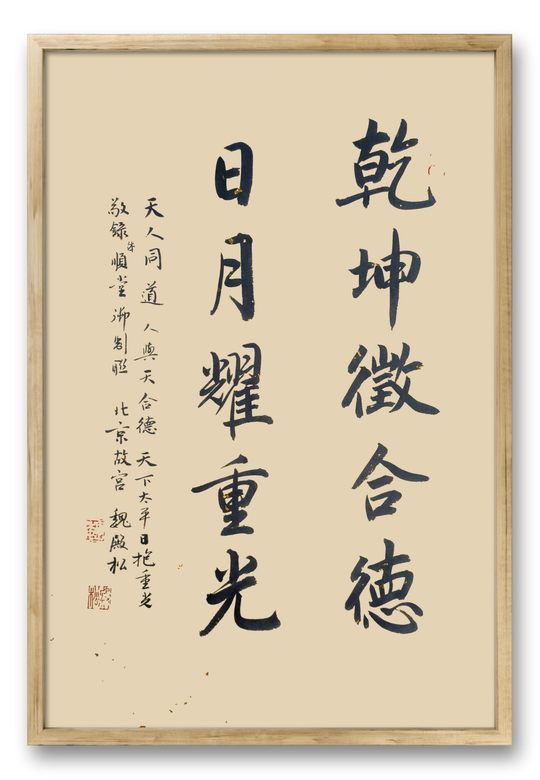 乾坤徵合德
日月耀重光
天人同道 人與天合德 天下太平日抱重光
敬錄順堂御制聯 北京故宮 魏殿松